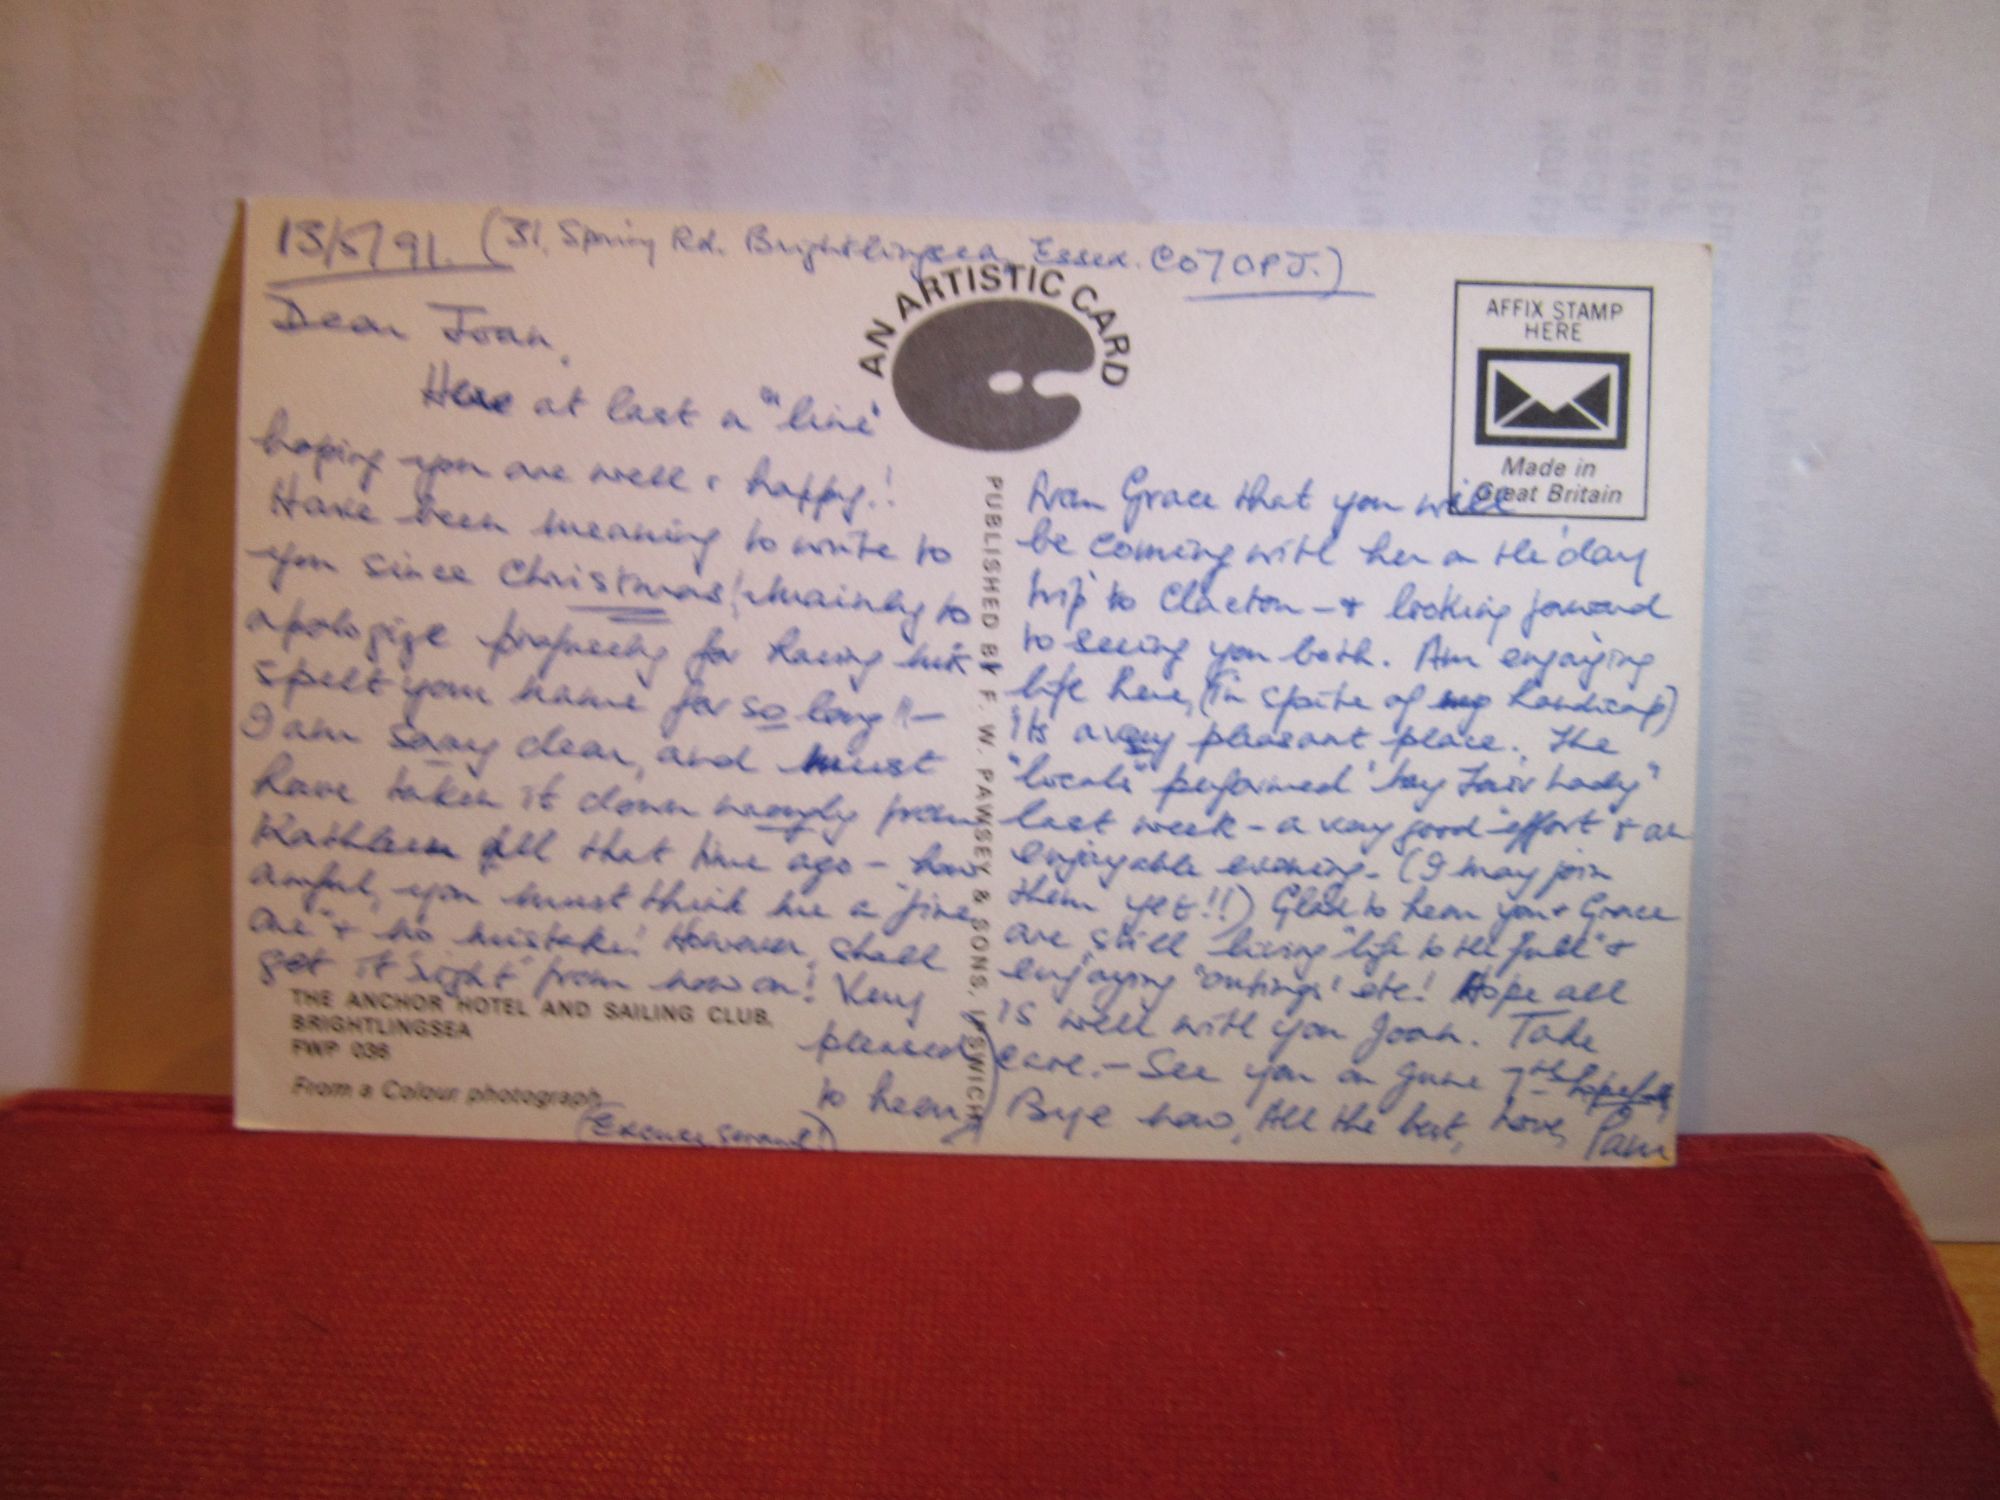 13/5/91. (31, Spring Rd. Brightlingsea, Essex. CO7 0PJ.)
AN ARTISTIC CARD
AFFIX STAMP
HERE
Made in
Great Britain
Dear Joan,
Here at last a "line"
hoping you are well & happy!!
Have been meaning to write to
you since Christmas! mainly to
apologize profusely for having mis
spelt your name for so long!! —
I am sorry dear, and must
have taken it down wrongly from
Kathleen all that time ago - how
awful, you must think me a "fine
one" & no mistake! However, shall
get it "right" from now on! Very
pleased
to hear
THE ANCHOR HOTEL AND SAILING CLUB,
BRIGHTLINGSEA
FWP 036
From a Colour photograph
(Excuse scrawl!)
PUBLISHED BY F. W. PAWSEY & SONS, IPSWICH
from Grace that you will
be coming with her on the 'day
trip' to Clacton - & looking forward
to seeing you both. Am enjoying
life here, (in spite of my handicap)
Its a very pleasant place. The
"locals" performed "My Fair Lady"
last week - a very good effort & an
enjoyable evening. (I may join
them yet!!) Glad to hear you & Grace
are still living "life to the full" &
enjoying "outings" etc! Hope all
is well with you Joan. Take
care. - See you on June 7th hopefully
Bye now, All the best, Love, Pam